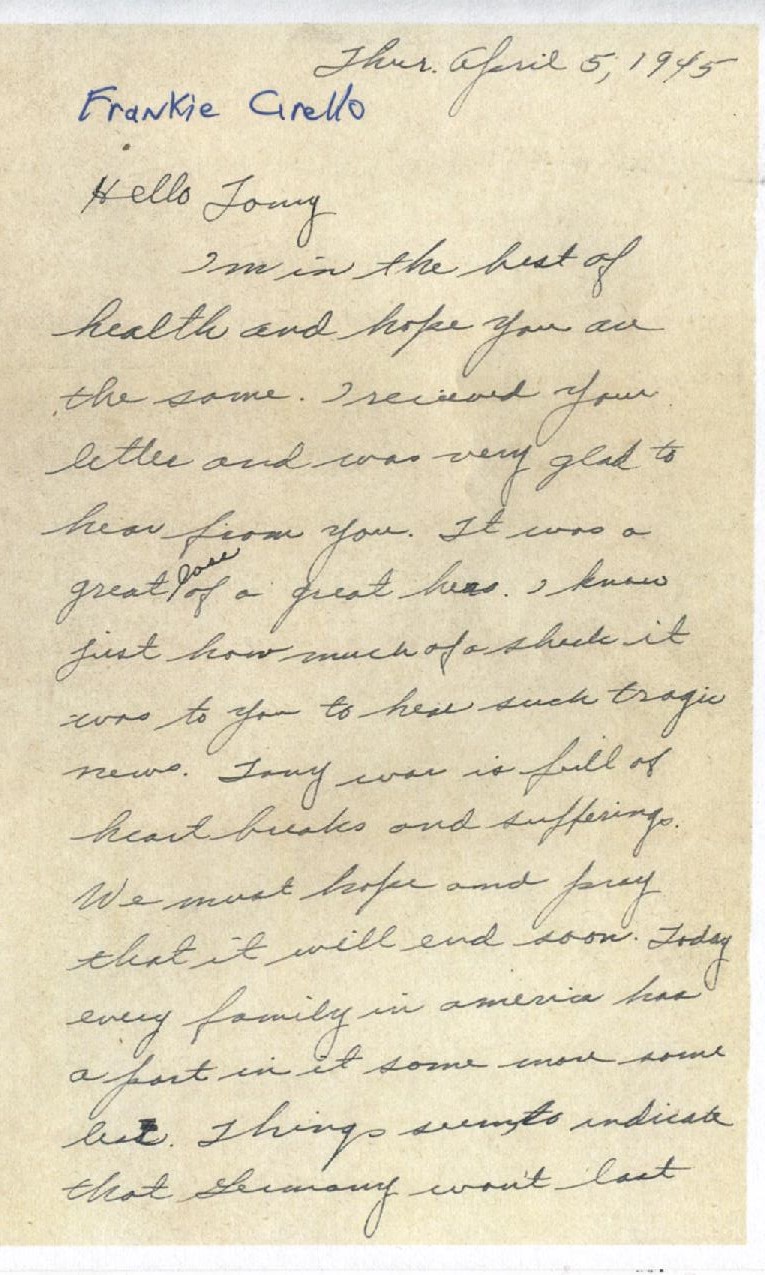 Thur. April 5, 1945
Frankie Cirello
Hello Tony
I'm in the best of
health and hope you are
the same. I recieved your
letter and was very glad to
hear from you. It was a
great lose of a great hero. I know
just how much of a shock it
was to you to hear such tragic
news. Tony war is full of
heart breaks and sufferings.
We must hope and pray
that it will end soon. Today
every family in america has
a part in it some more some
less. Things seem to indicate
that Germany won't last